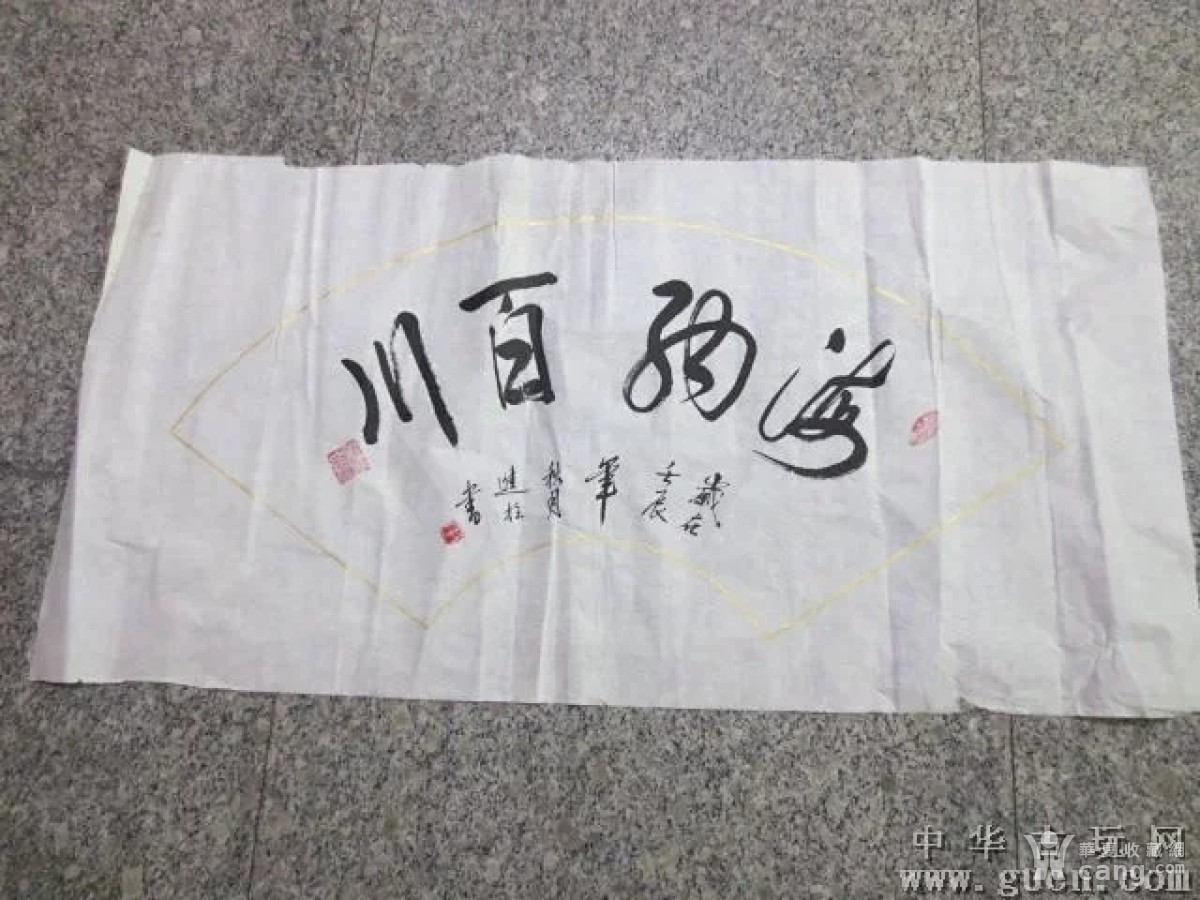 海纳百川
岁在
壬辰
年
秋月
进
书
中华古玩网
www.gucn.com
華夏收藏網
cang.com